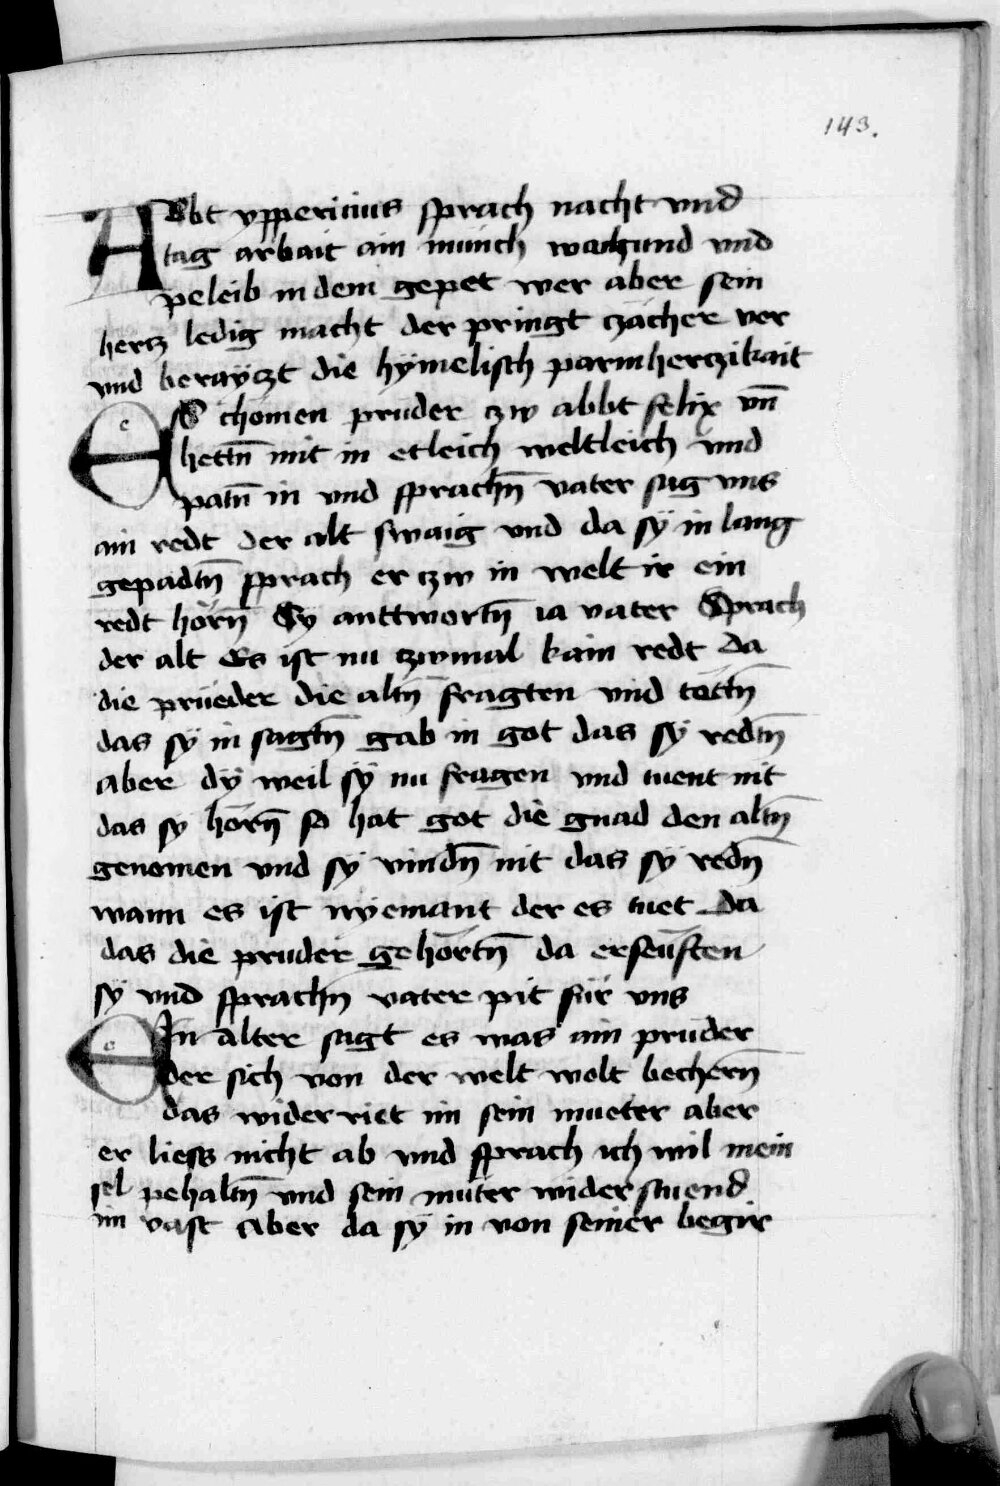 143.
ABbt yppericius sprach nacht und
tag arbait ain münch wachund vnd
peleib in dem gepet wer aber sein
hertz ledig macht der pringt czächer ver
vnd berayczt die hymelisch parmherczikait
ES chömen prüder czw abbt felix vn̄
hettn̄ mit in etleich weltleich vnd
patn̄ in vnd sprachn̄ vater sag vns
ain redt der alt swaig vnd da sy in lang
gepadtn̄ sprach er czw in welt ir ein
redt hörn̄ Sy anttwortn̄ ia vater Sprach
der alt Es ist nu czwmal kain redt Da
die prüeder die altn̄ fragten vnd tottn̄
das sy in sagtn̄ gab in got das sy redtn̄
aber dy weil sy nu fragen vnd tuent nit
das sy hörn̄ so hat got die gnad den altn̄
genomen vnd sy vindn̄ nit das sy redn̄
wann es ist nyemant der es tuet Da
das die pruder gehörtn̄ da erseuften
sy vnd sprachn̄ vater pit für vns
EIn alter sagt es was ain pruder
der sich von der welt wolt bechern̄
das widerriet im sein mueter aber
er liess nicht ab vnd sprach ich wil mein
sel pehaltn̄ vnd sein muter widerstuend
im vast Aber da sy in von seiner begir